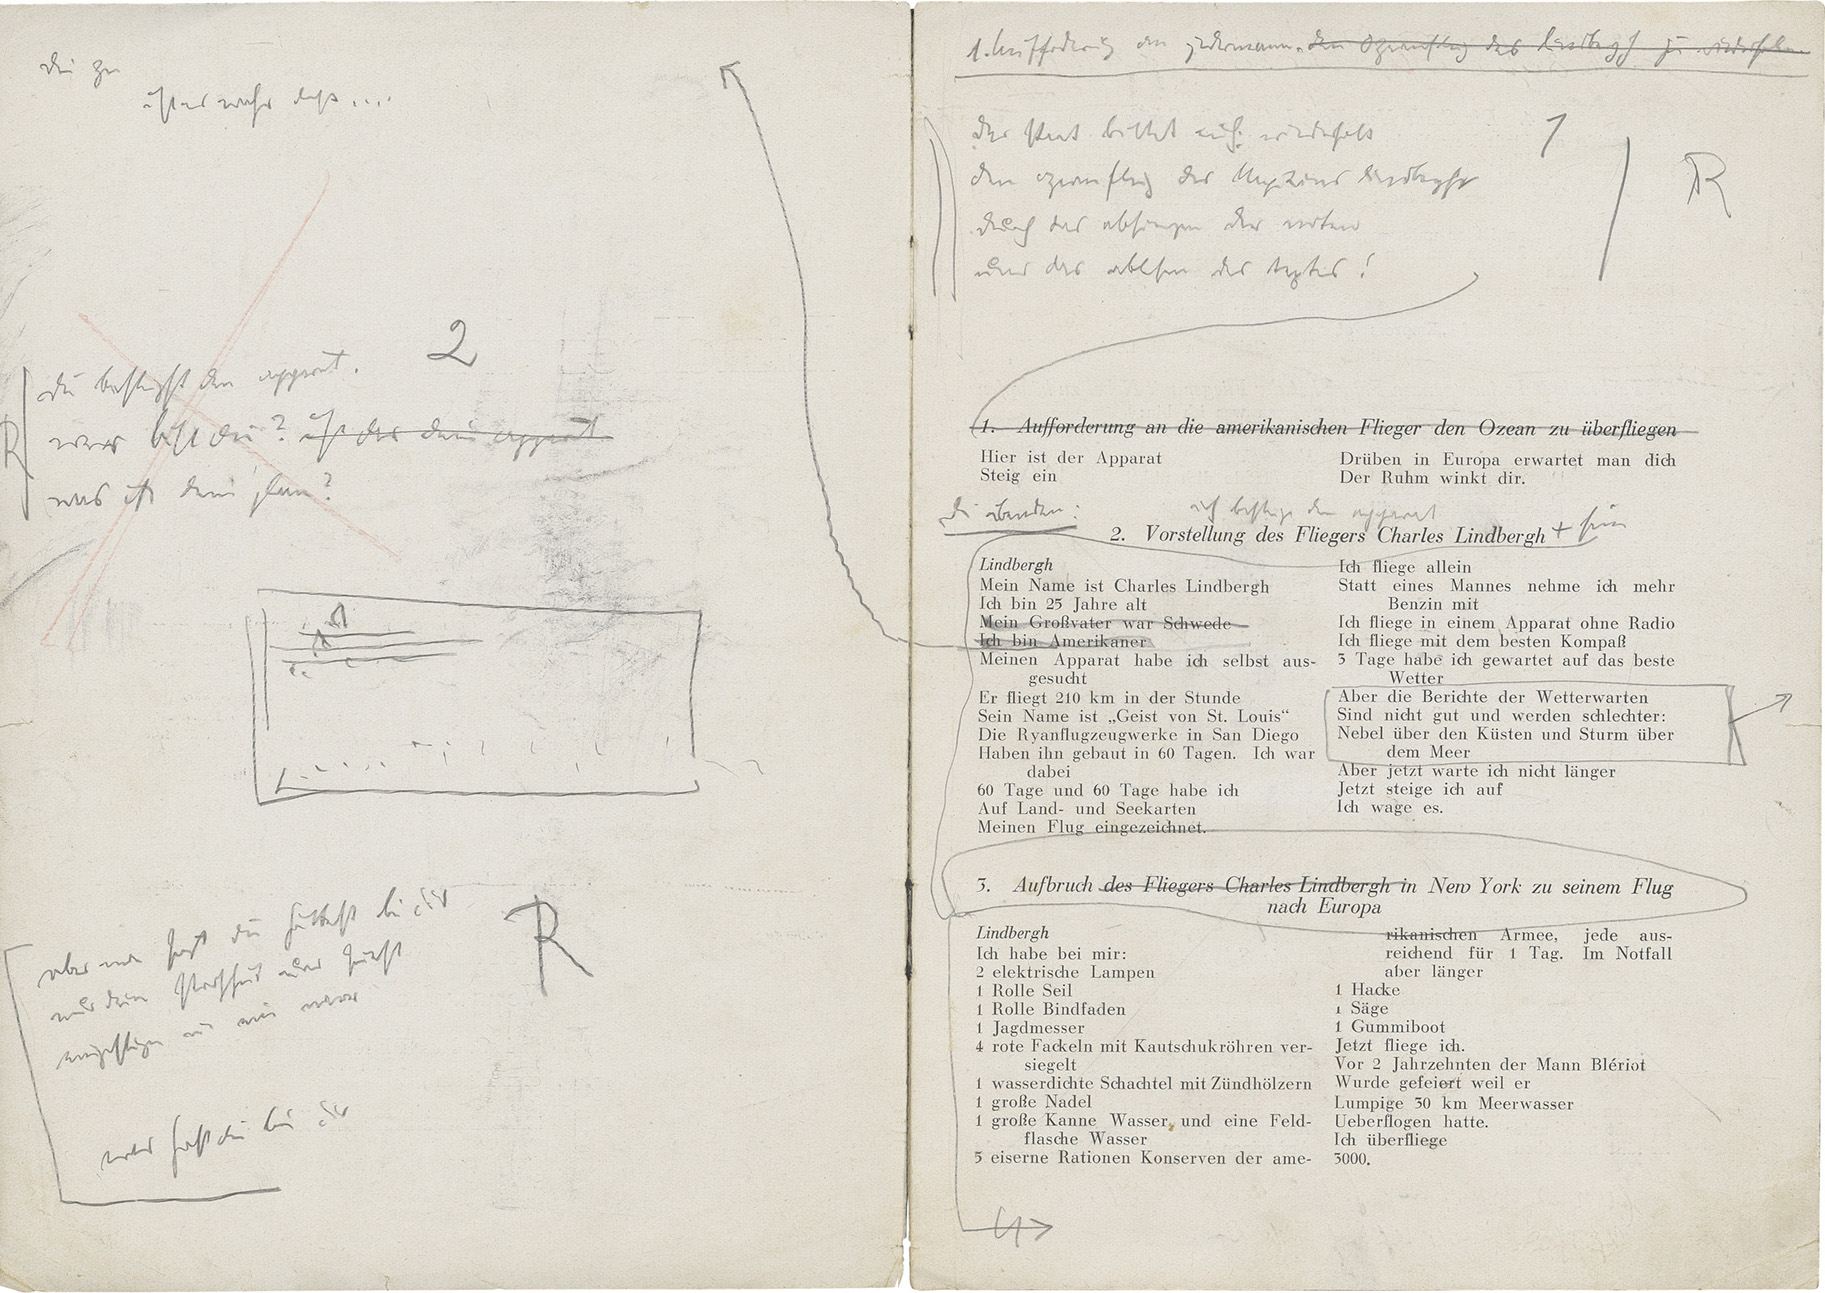 du zu
ist es wahr dass....
2
du besteigst den apparat.
wer bist du? ist das dein apparat
was ist dein plan?
R
aber man sagt du hättest bei dir
nur dein
R
was hast du bei dir
1. Aufforderung an jedermann. den Ozeanflug des lindbergh zu wiederholen.
das
bittet euch: wiederholt
1
den ozeanflug des kapitäns lindbergh
R
durch das absingen der noten
und das ablesen des textes!
1. Aufforderung an die amerikanischen Flieger den Ozean zu überfliegen
Hier ist der Apparat
Steig ein
Drüben in Europa erwartet man dich
Der Ruhm winkt dir.
ich besteige den apparat
2. Vorstellung des Fliegers Charles Lindbergh +
Lindbergh
Mein Name ist Charles Lindbergh
Ich bin 25 Jahre alt
Mein Großvater war Schwede
Ich bin Amerikaner
Meinen Apparat habe ich selbst aus-
gesucht
Er fliegt 210 km in der Stunde
Sein Name ist „Geist von St. Louis“
Die Ryanflugzeugwerke in San Diego
Haben ihn gebaut in 60 Tagen. Ich war
dabei
60 Tage und 60 Tage habe ich
Auf Land- und Seekarten
Meinen Flug eingezeichnet.
Ich fliege allein
Statt eines Mannes nehme ich mehr
Benzin mit
Ich fliege in einem Apparat ohne Radio
Ich fliege mit dem besten Kompaß
3 Tage habe ich gewartet auf das beste
Wetter
Aber die Berichte der Wetterwarten
Sind nicht gut und werden schlechter:
Nebel über den Küsten und Sturm über
dem Meer
Aber jetzt warte ich nicht länger
Jetzt steige ich auf
Ich wage es.
3. Aufbruch des Fliegers Charles Lindbergh in New York zu seinem Flug
nach Europa
Lindbergh
Ich habe bei mir:
2 elektrische Lampen
1 Rolle Seil
1 Rolle Bindfaden
1 Jagdmesser
4 rote Fackeln mit Kautschukröhren ver-
siegelt
1 wasserdichte Schachtel mit Zündhölzern
1 große Nadel
1 große Kanne Wasser, und eine Feld-
flasche Wasser
5 eiserne Rationen Konserven der ame-
rikanischen Armee, jede aus-
reichend für 1 Tag. Im Notfall
aber länger
1 Hacke
1 Säge
1 Gummiboot
Jetzt fliege ich.
Vor 2 Jahrzehnten der Mann Blériot
Wurde gefeiert weil er
Lumpige 30 km Meerwasser
Ueberflogen hatte.
Ich überfliege
3000.